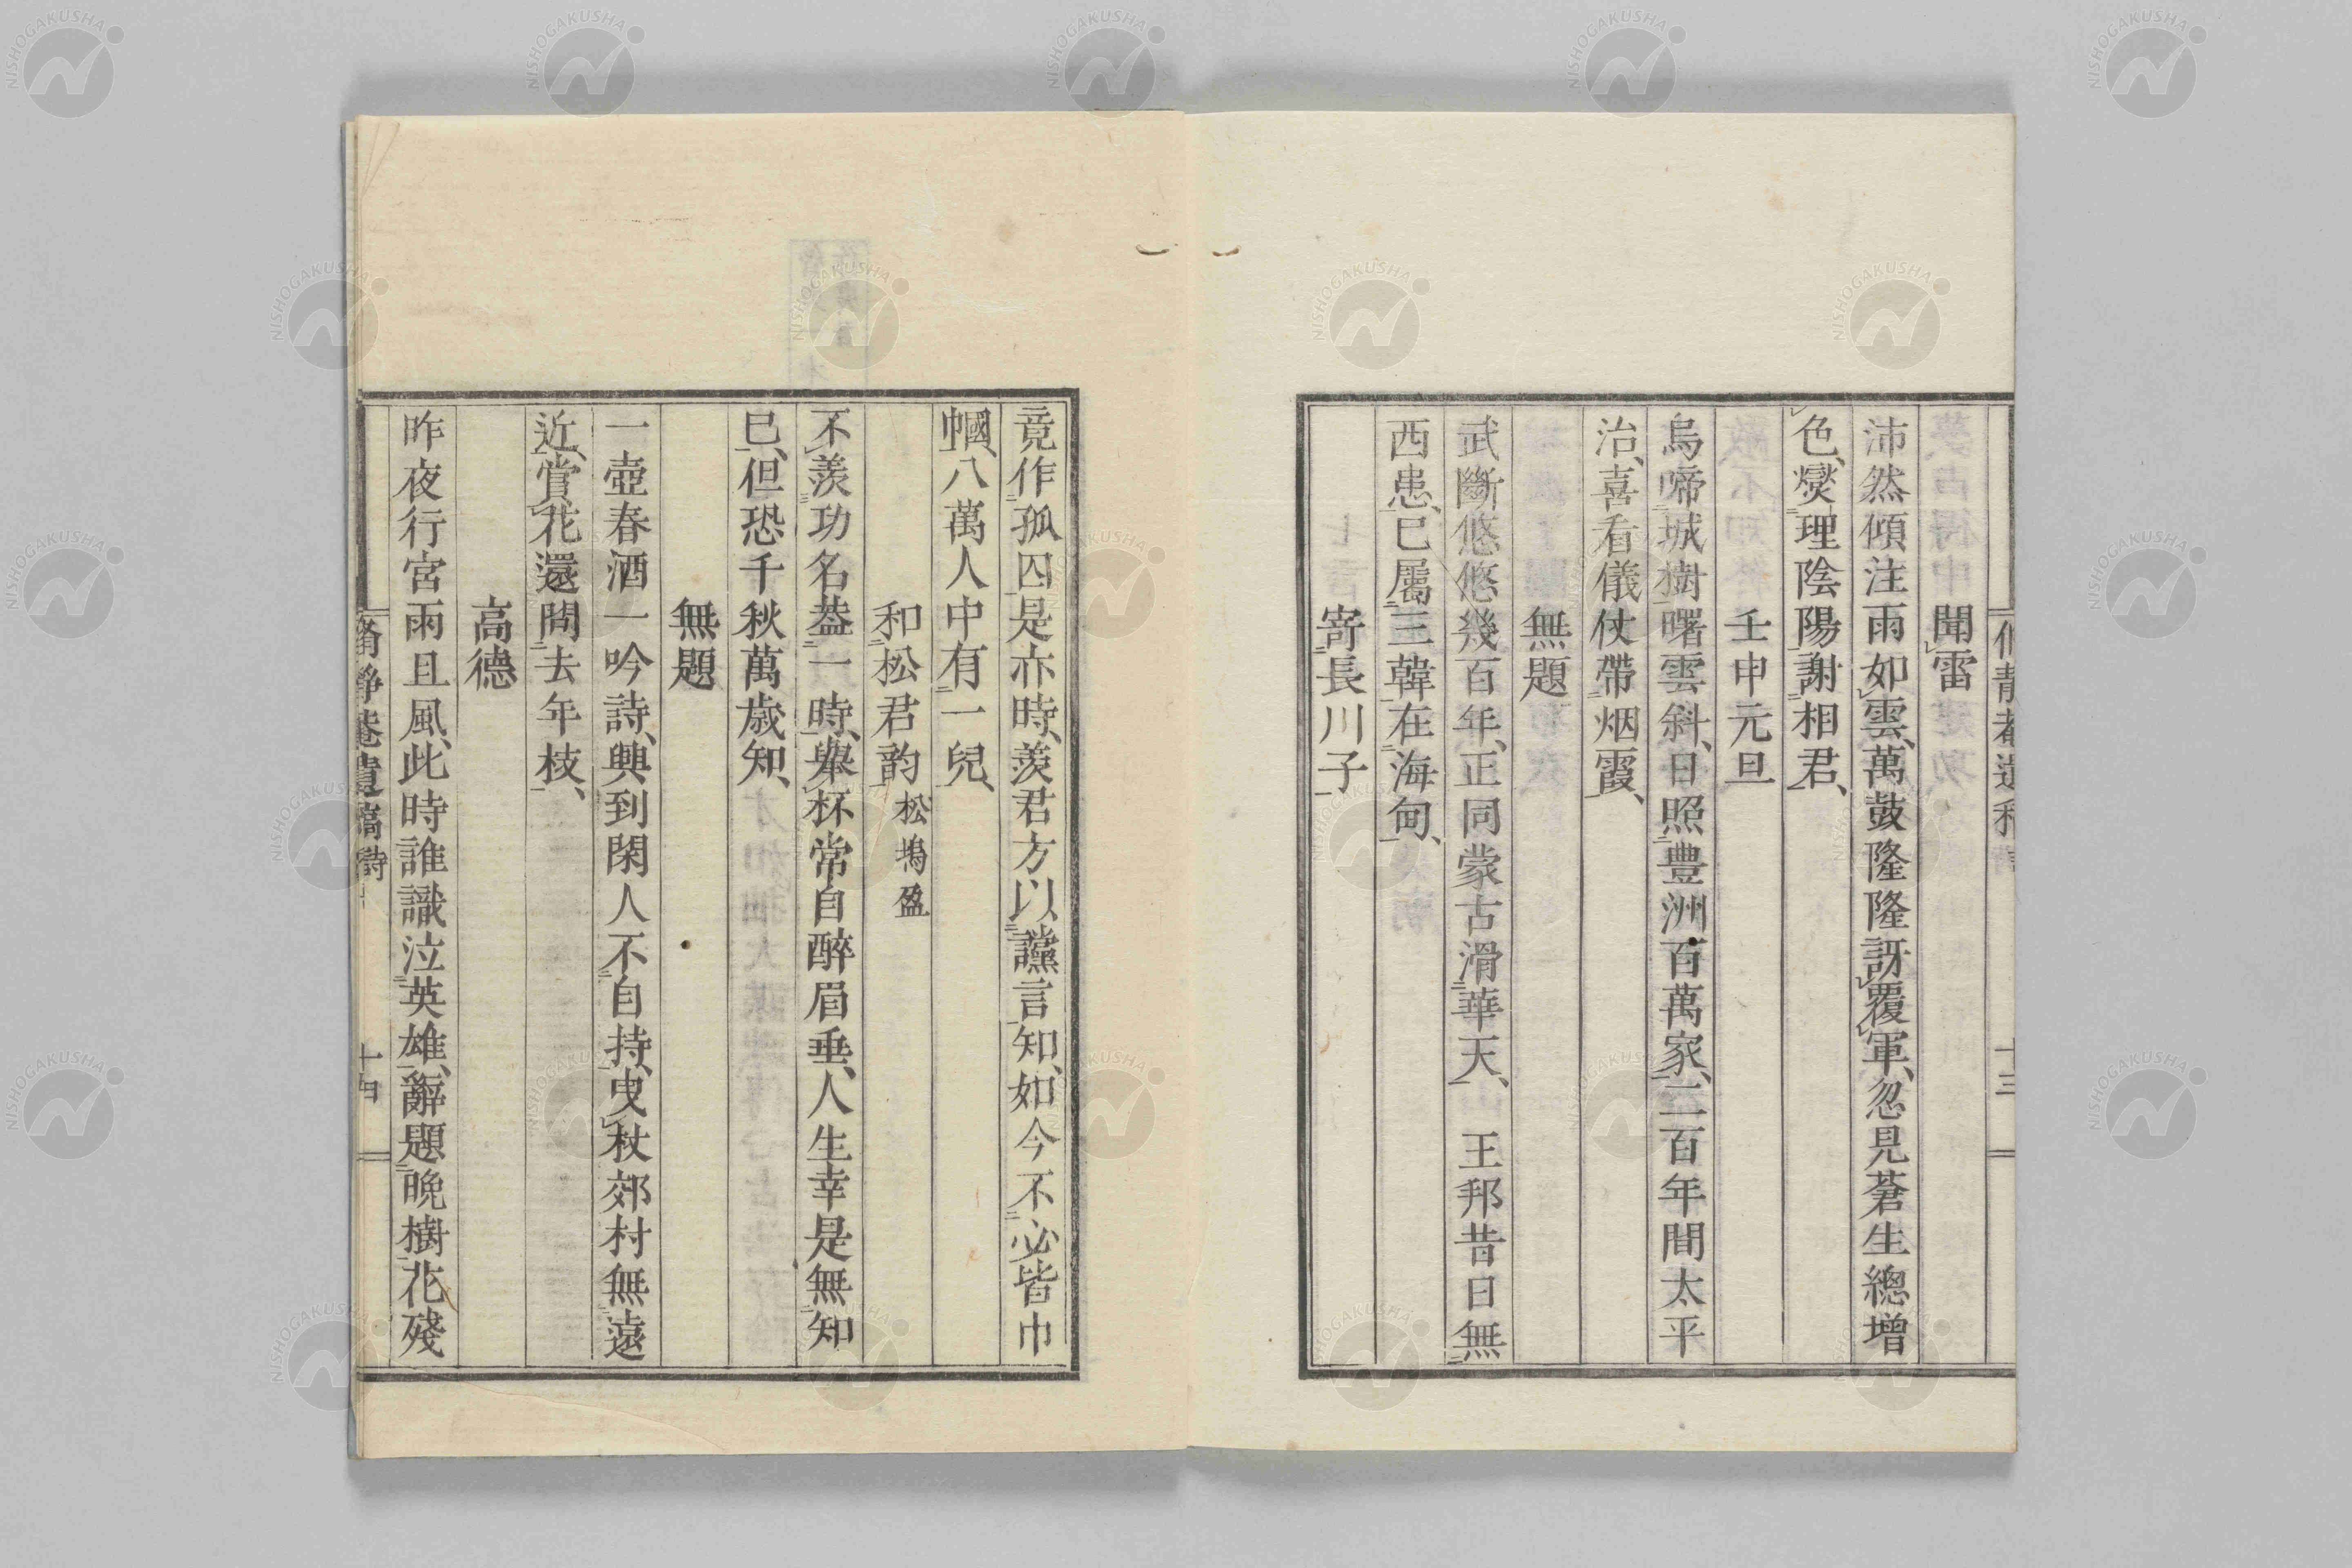 聞雷
沛然傾注雨如雲、萬鼓隆隆訝覆軍、忽見蒼生總增
色、爕理陰陽謝相君、
壬申元旦
烏啼城樹曙雲斜、日照豊洲百萬家、二百年間太平
治、喜看儀仗帶烟霞、
無題
武斷悠悠幾百年、正同蒙古滑華天、 王邦昔日無
西患、已屬三韓在海甸、
寄長川子
竟作孤囚是亦時、羨君方以讜言知、如今不必皆巾
幗、八萬人中有一兒、
和松君韵 松塢盈
不羨功名葢一時、舉杯常自醉眉垂、人生幸是無知
已、但恐千秋萬歲知、
無題
一壺春酒一吟詩、興到閑人不自持、曳杖郊村無遠
近、賞花還問去年枝、
高德
昨夜行宮雨且風、此時誰識泣英雄、辭題晚樹花殘
脩靜菴遺稿 詩 十四
NISHOGAKUSHA